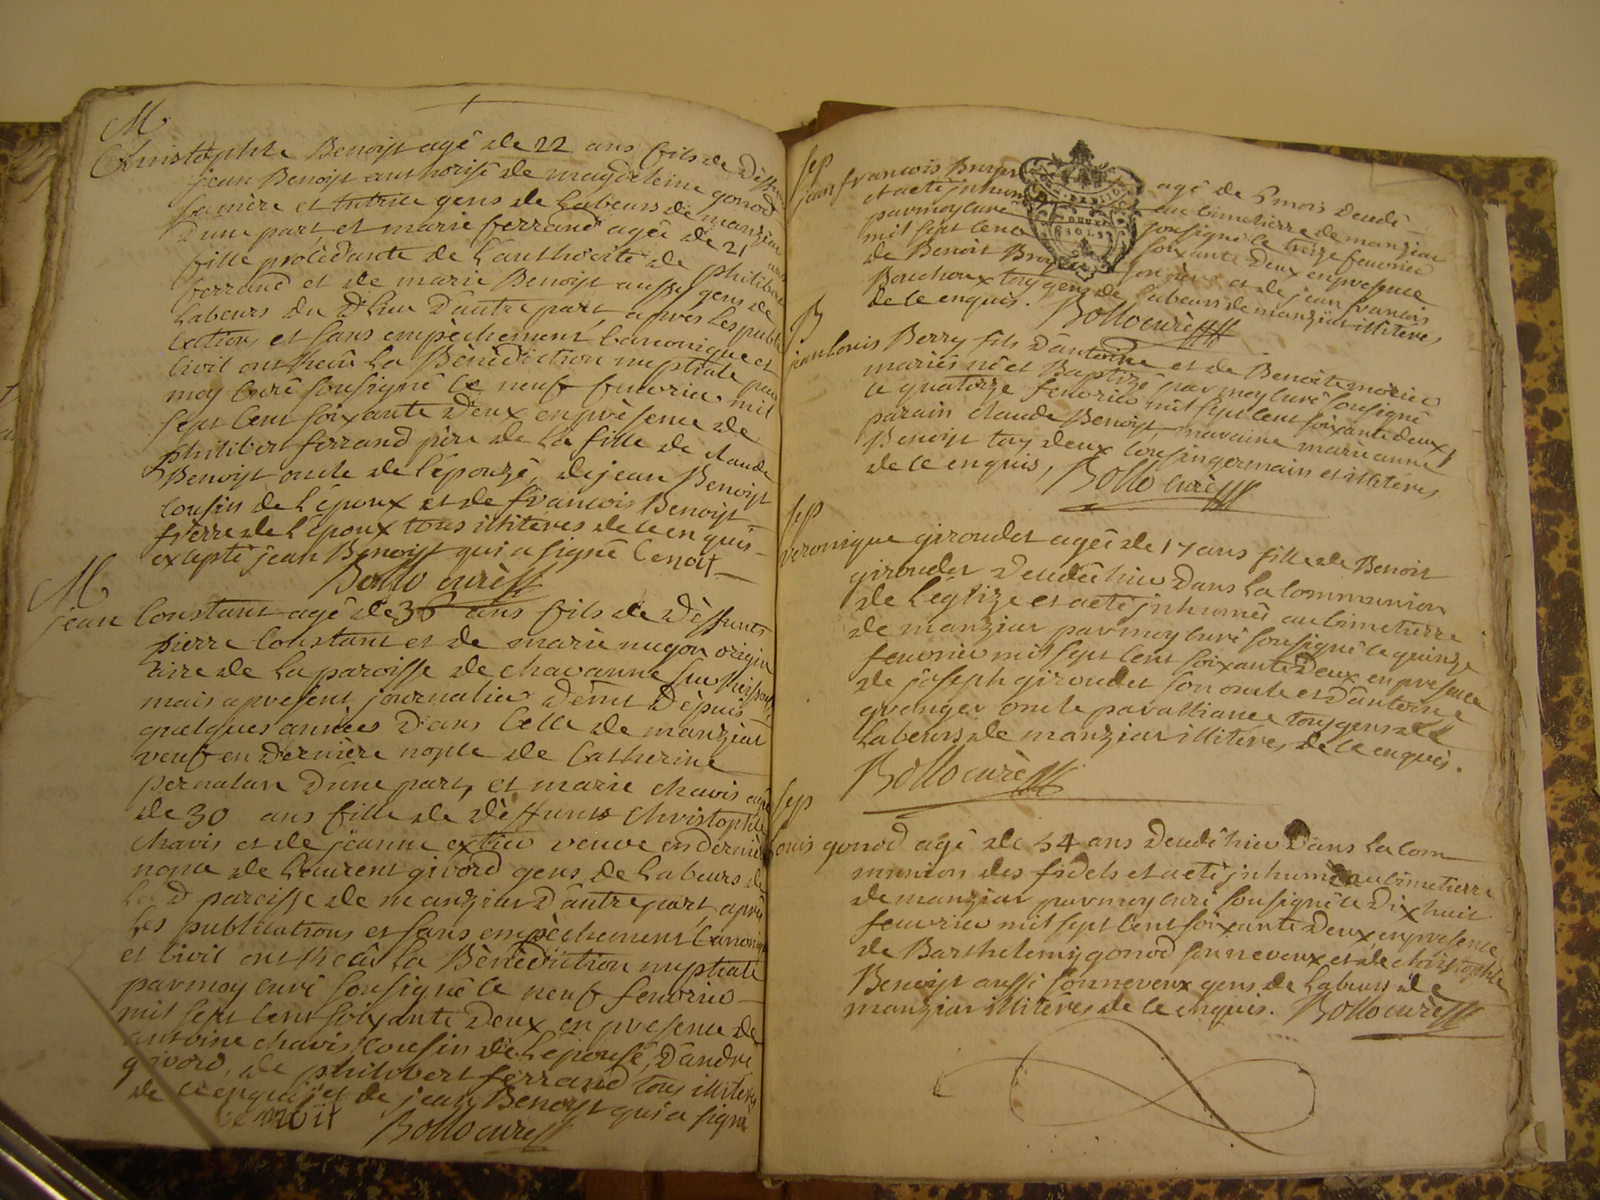 M
Christophle Benoist agé de 22 ans fils de deffunt
jean Benoist authorisé de magdeleine gonod
sa mère et tutrice gens de Labeurs de manziat
d'une part, et marie ferrand agée de 21 ans
fille procedante de L'authorité de philibert
ferrand et de marie Benoist aussy gens de
Labeurs du d lieu d'autre part, apres les publi
cations et sans empèchement canonique et
civil ont recû La Bénédiction nuptiale par
moy curé sousigné ce neuf fevrier mil
sept cent soixante deux en présence de
philibert ferrand père de La fille de claude
Benoist oncle de l'epouzé, de jean Benoist
cousin de L'epoux et de francois Benoist
frerre de L'époux tous illitères de ce enquis
excepté jean Benoist qui a signé Benoit
Bollo curé
M
jean Constant agé de 36 ans fils de déffunts
pierre Constant et de marie nugon origin
aire de La paroisse de chavanne sur
mais a present journalier dem depuis
quelques années dans celle de manziat
veuf en dernière nopce de Catherine
d'une part, et marie chavis agée
de 30 ans fille de déffunts christophle
chavis et de jeanne veuve en dernière
nopce de Laurent givord gens de Labeurs de
La d paroisse de manziat d'autre part, après
les publications et sans empèchement canonique
et civil ont recû La Bénédiction nuptiale
par moy curé sousigné ce neuf fevrier
mil sept cent soixante deux en presence de
antoine chavis cousin de L'epousé, d'andré
givord, de philibert ferrand tous illitères
de ce enquis et de jean Benoist qui a signé
Benoit Bollo curé
sep
jean francois agé de 5 mois decedé
et a eté inhumé au cimetierre de manziat
par moy curé sousigné le treize fevrier
mil sept cent soixante deux en presence
de Benoit son pere et de jean francois
Bouchoux tous gens de Labeurs de manziat illitères
de ce enquis. Bollo curé
B
jean Louis Berry fils d'antoinne et de Benoite morier
mariés né et Baptizé par moy curé sousigné
le quatorze fevrier mil sept cent soixante deux,
parain claude Benoist, maraine marie anne
Benoist tous deux cousin germain et illitères
de ce enquis, Bollo curé
sep
veronique giroudet agée de 17 ans fille de Benoit
giroudet decedée hier dans La communion
de L'eglize et a eté inhumée au cimetierre
de manziat par moy curé sousigné ce quinze
fevrier mil sept cent soixante deux en presence
de joseph giroudet son oncle et d'antoine
granger oncle par alliance tous gens de
Labeurs de manziat illitères de ce enquis.
Bollo curé
sep
Louis gonod agé de 54 ans decedé hier dans La com
munion des fidels et a eté inhumé au cimetierre
de manziat par moy curé sousigné ce dix huit
fevrier mil sept cent soixante deux en presence
de Barthelemy gonod son neveux et de christophle
Benoist aussi son neveux gens de Labeurs de
manziat illitères de ce enquis. Bollo curé